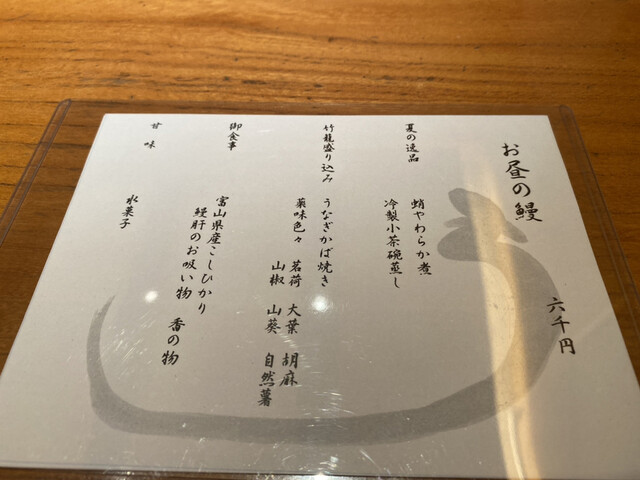 お昼の鰻
六千円
夏の逸品
蛸やわらか煮
冷製小茶碗蒸し
竹籠盛り込み
うなぎかば焼き
薬味色々
茗荷 大葉 胡麻
山椒 山葵 自然薯
御食事
富山県産こしひかり
鰻肝のお吸い物 香の物
甘味
水菓子